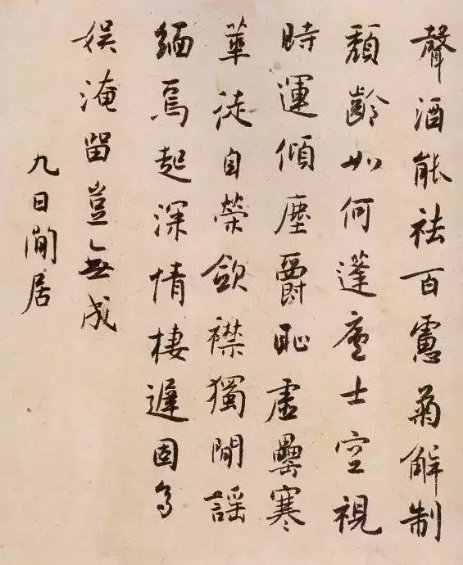 聲酒能祛百慮菊解制
頹齡如何蓬廬士空視
時運傾塵爵恥虛罍寒
華徒自榮歛襟獨閒謠
緬焉起深情棲遲固多
娛淹留豈無成
九日閒居